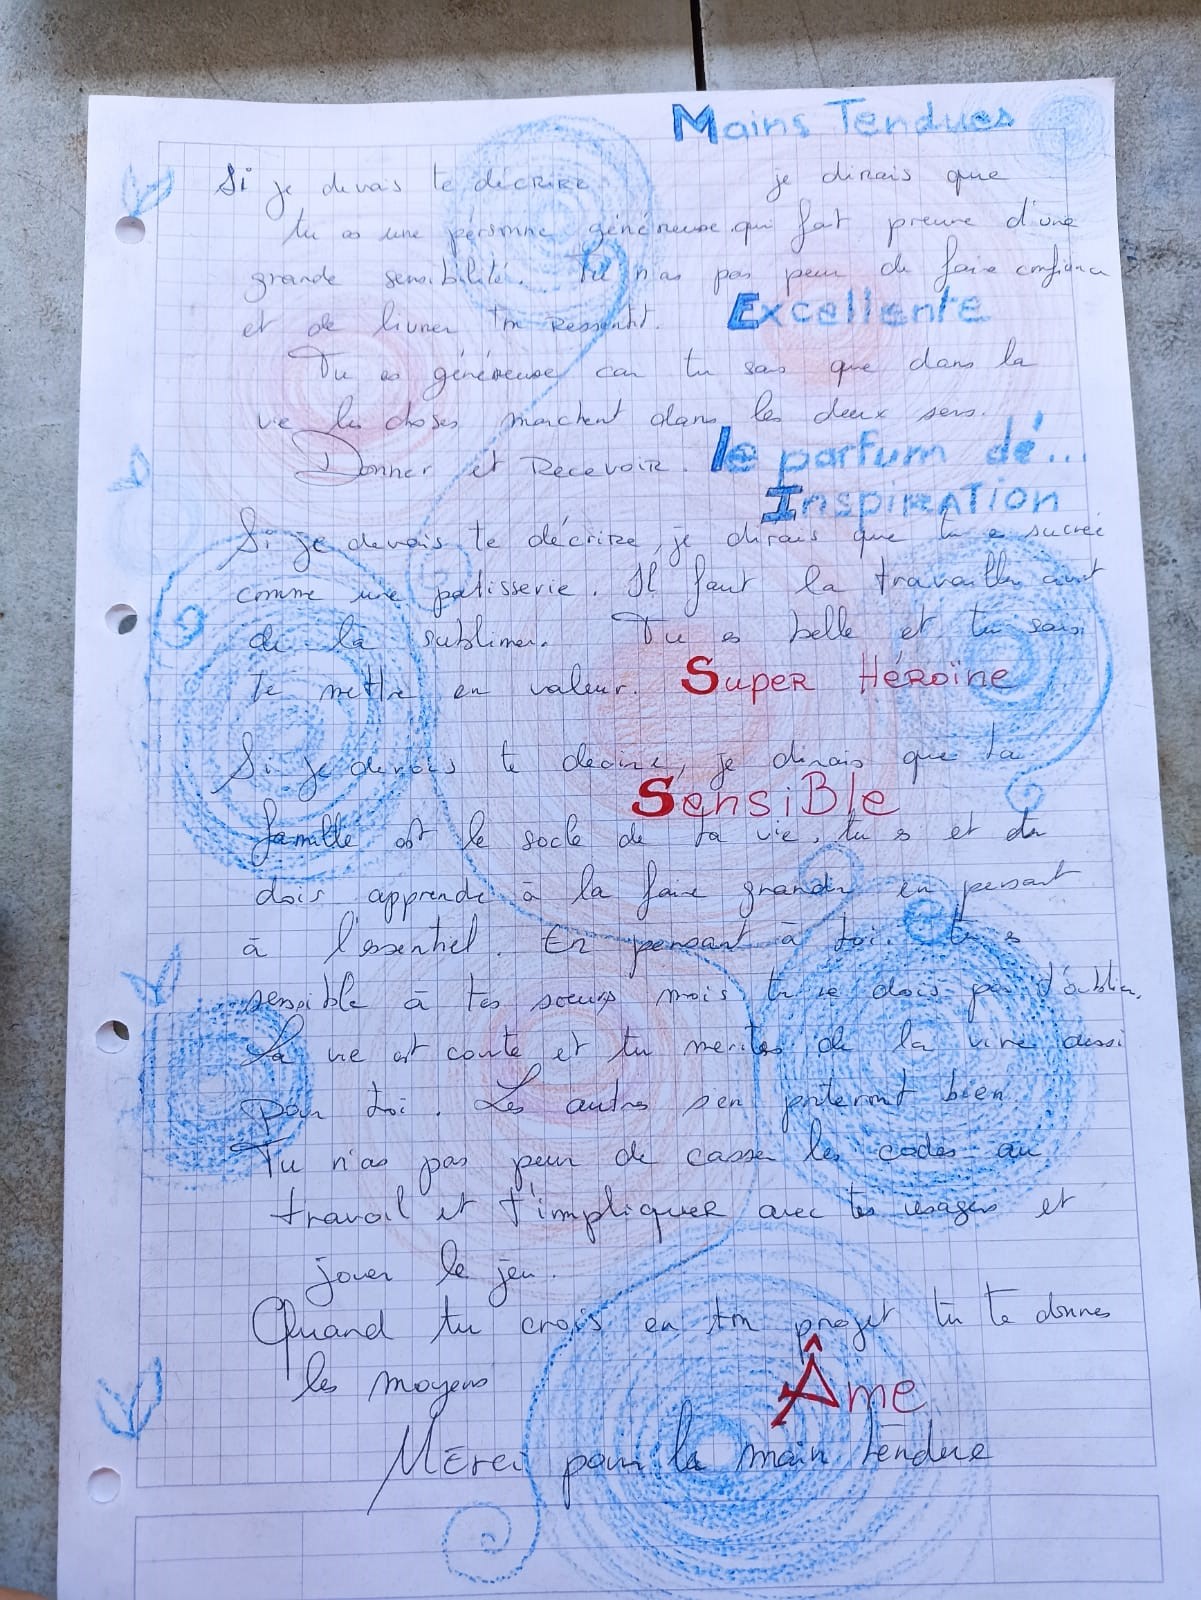 Mains Tendues
Si je devais te décrire je dirais que
tu es une personne généreuse qui fait preuve d'une
grande sensibilité. Tu n'as pas peur de faire confiance
et de livrer ton ressentit.
Excellente
Tu es généreuse car tu sais que dans la
vie les choses marchent dans les deux sens.
Donner et Recevoir.
le parfum dé...
Inspiration
Si je devais te décrire, je dirais que tu e sucrée
comme une patisserie. Il faut la travailler avant
de la sublimer. Tu es belle et tu sais
te mettre en valeur.
Super Héroïne
Si je devais te décrire, je dirais que la
Sensible
famille est le socle de ta vie, tu s et tu
dois apprendre à la faire grandir en pensant
à l'essentiel. En pensant à toi. tu s
sensible à tes soeurs mais tu ne dois pas t'oublier.
La vie est courte et tu merites de la vivre aussi
pour toi. Les autres s'en porteront bien
Tu n'as pas peur de casser les codes au
travail et t'impliquer avec tes usagers et
jouer le jeu.
Quand tu crois en ton projet tu te donnes
les moyens
Âme
Merci pour la main tendue